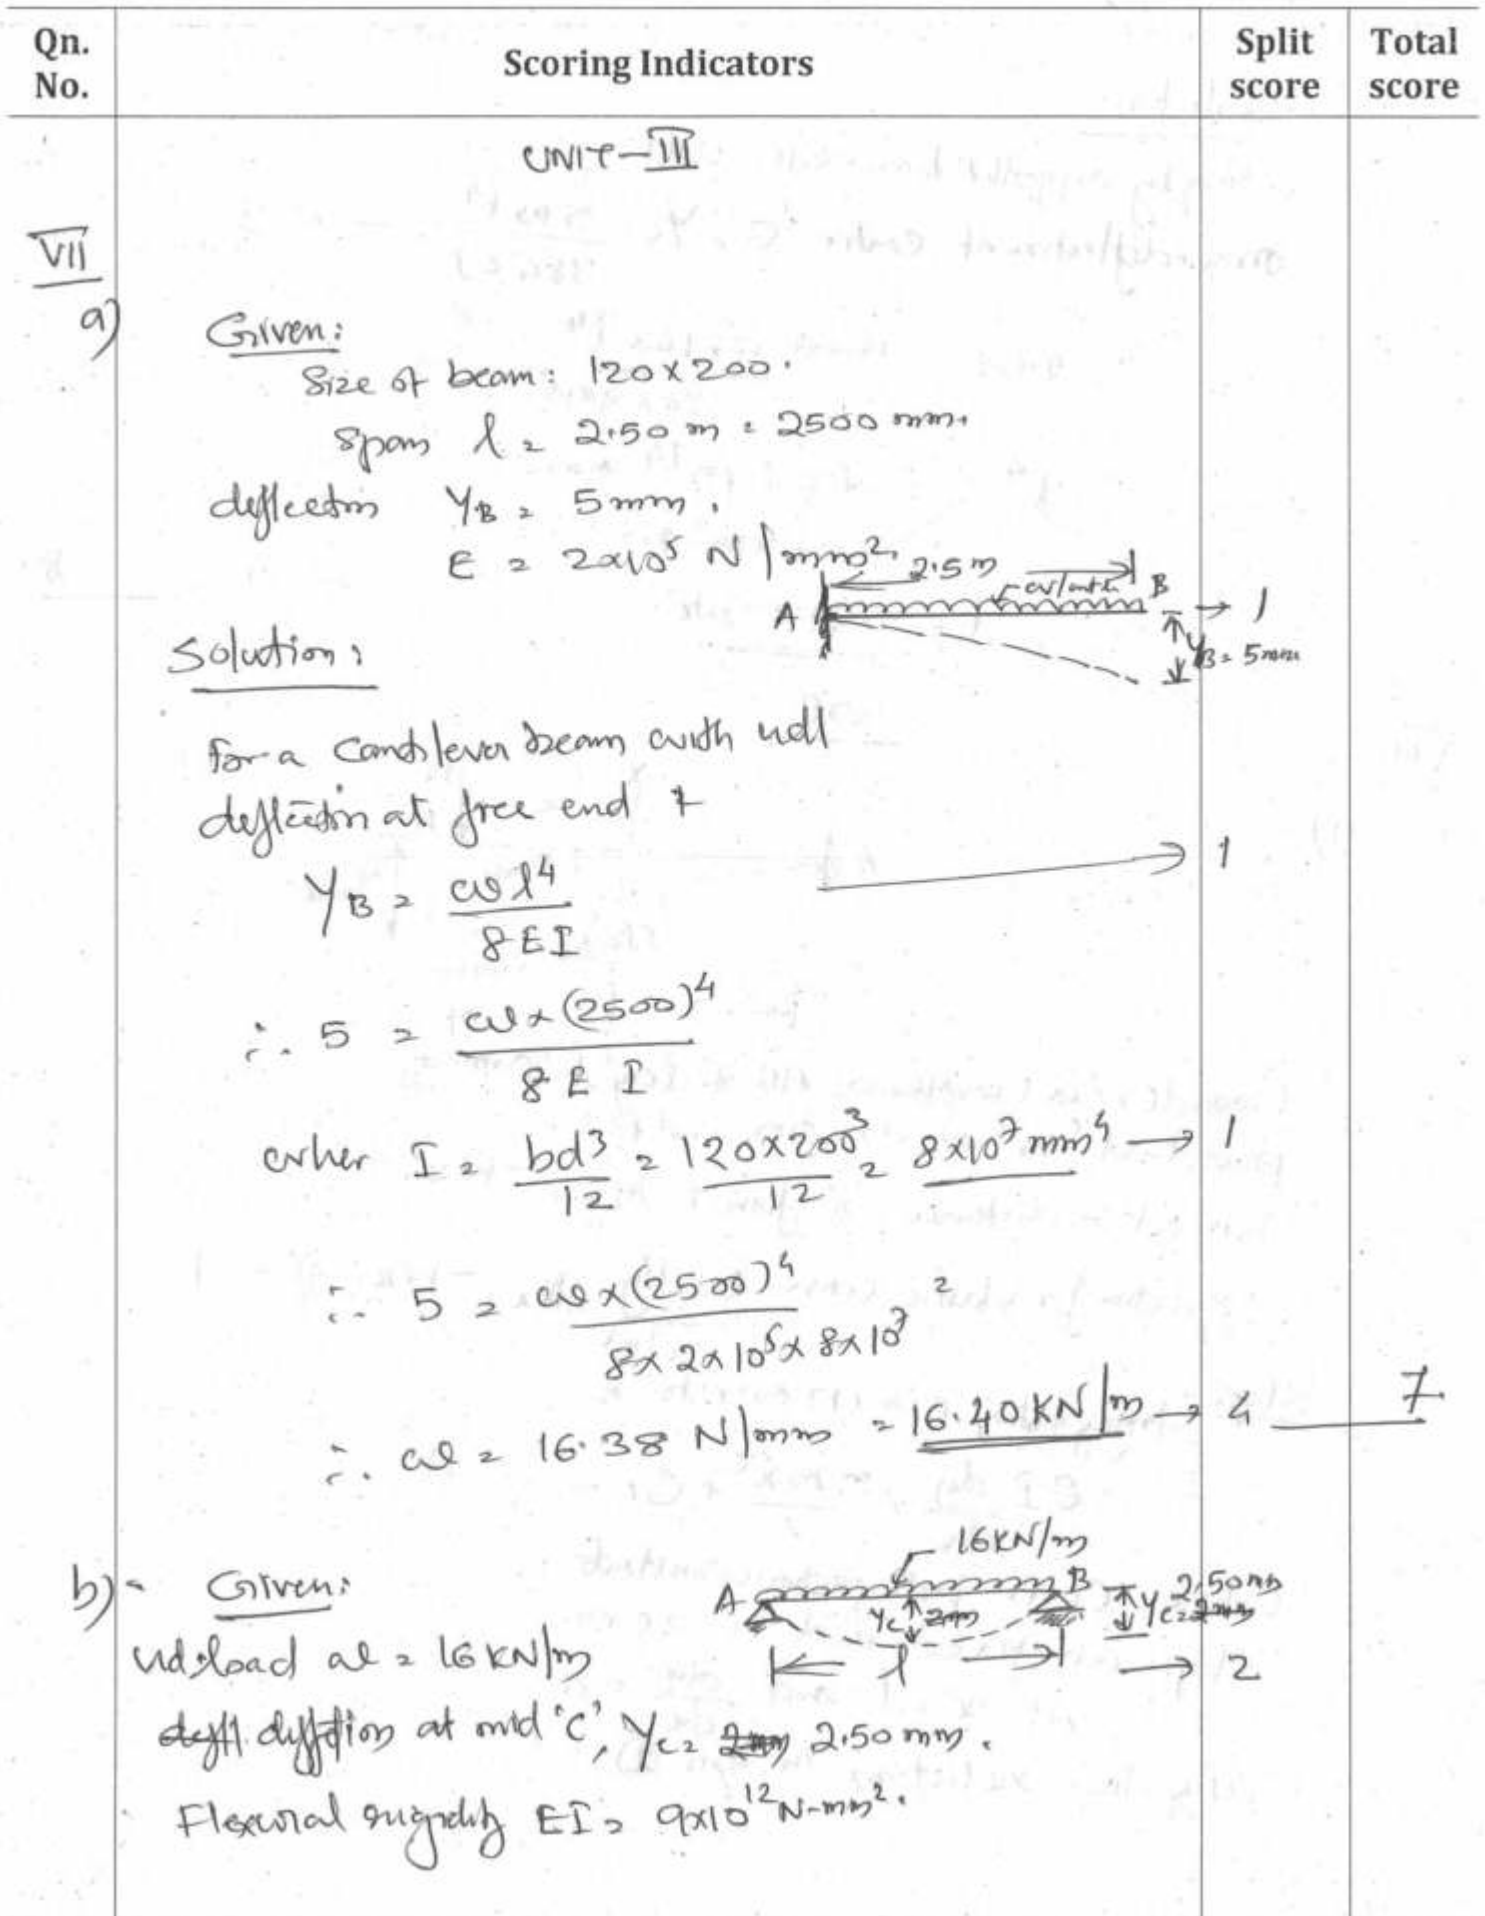 Qn. No.
Scoring Indicators
Split score
Total score
UNIT-III
VII
a)
Given:
Size of beam: 120x200.
Span l = 2.50 m = 2500 mm.
deflection Y_B = 5mm.
E = 2x10^5 N/mm^2.
2.5m
w/unit
A
B
→ 1
Y_B = 5mm
Solution:
For a Cantilever beam with udl
deflection at free end
Y_B = wl^4 / 8EI → 1
∴ 5 = w x (2500)^4 / 8 E I
wher I = bd^3/12 = 120x200^3/12 = 8x10^7 mm^4 → 1
∴ 5 = w x (2500)^4 / 8x 2x10^5 x 8x10^7
∴ w = 16.38 N/mm = 16.40 KN/m → 4
7.
b)-
Given:
16KN/m
A
B
Yc
2mm
2.50mm
Yc = 2mm
l
→ 2
ud.load w = 16 KN/m
defl. deflection at mid 'C', Yc = 2mm 2.50 mm.
Flexural rigidity EI = 9x10^12 N-mm^2.